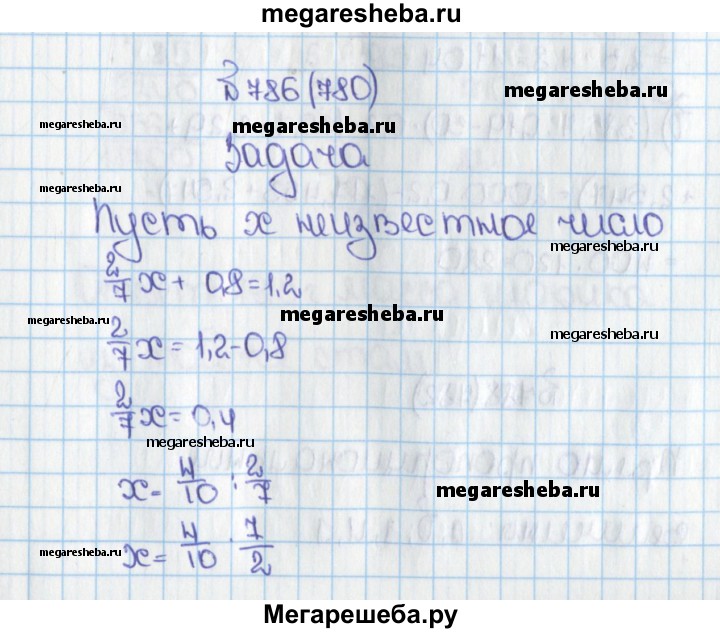 megaresheba.ru
№ 786 (780)
megaresheba.ru
megaresheba.ru
megaresheba.ru
Задача
megaresheba.ru
Пусть x неизвестное число
megaresheba.ru
2/7 x + 0,8 = 1,2
megaresheba.ru
megaresheba.ru
2/7 x = 1,2 - 0,8
megaresheba.ru
2/7 x = 0,4
megaresheba.ru
x = 4/10 : 2/7
megaresheba.ru
x = 4/10 · 7/2
megaresheba.ru
megaresheba.ru
Мегарешеба.ру